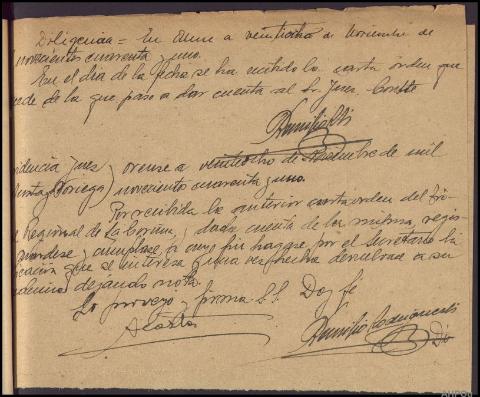 Diligencia = En Orense a veintiocho de Noviembre de
novecientos cuarenta y uno.
En el dia de la fecha se ha recibido la carta orden que
de la que paso a dar cuenta al Sr. Juez. Conste
idencia Juez) Orense a veintiocho de Noviembre de mil
Noriega) novecientos cuarenta y uno.
Por recibida la anterior carta orden del
Regional de La Coruña, dada cuenta de la misma, regis-
cumplase, a cuyo fin hagase por el Secretario la
que se interesa y una vez hecha devuelvase a su
dejando nota.
Lo proveyo y firma S.S. Doy fe